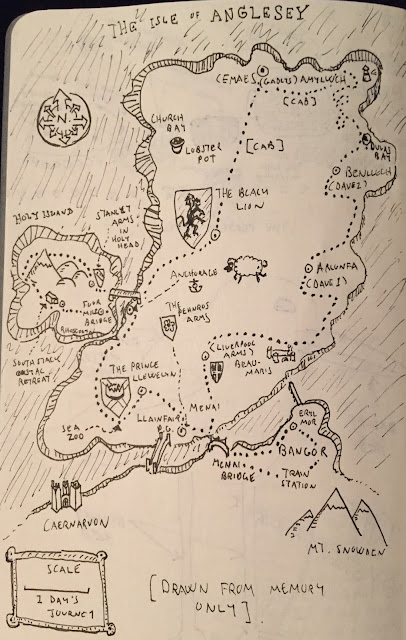 THE ISLE OF ANGLESEY
CEMAES (GADLYS) AMYLWCH
[CAB]
CHURCH
BAY
LOBSTER
POT
[CAB]
DULAS
BAY
BENLLECH
(DAVE2)
THE BLACK
LION
HOLY ISLAND
STANLEY
ARMS
IN
HOLY
HEAD
N
ANCHORAGE
ARLUNFA
(DAVE1)
FOUR
MILE
BRIDGE
RHOSCOLYN
SOUTH STACK
COASTAL
RETREAT
THE
PENHROS
ARMS
(LIVERPOOL
ARMS)
BEAU-
MARIS
THE PRINCE
LLEWELYN
SEA
ZOO
LLAINFAIR
P.G.
MENAI
MENAI
BRIDGE
ERYL
MOR
BANGOR
TRAIN
STATION
CAERNARVON
MT. SNOWDEN
SCALE
1 DAY'S
JOURNEY
[DRAWN FROM MEMORY
ONLY].